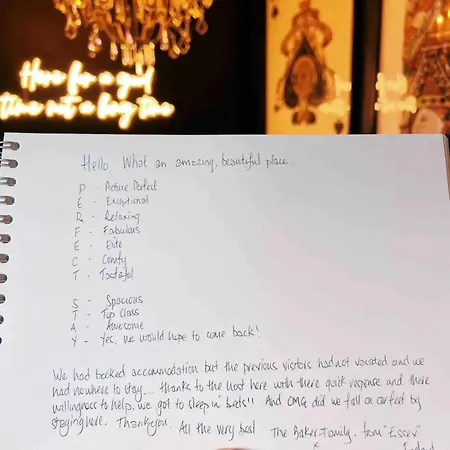 Here for a good
time not a long time
Hello, What an amazing, beautiful place.
P - Picture Perfect
E - Exceptional
R - Relaxing
F - Fabulous
E - Elite
C - Comfy
T - Tasteful
S - Spacious
T - Top Class
A - Awesome
Y - Yes, we would hope to come back!
We had booked accommodation but the previous visitors had not vacated and we
had nowhere to stay... thanks to the host here with there quick response and there
willingness to help. we got to sleep in "beds"!! And OMG did we fall on our feet by
staying here. Thankyou. All the very best The Baker Family, from "Essex"